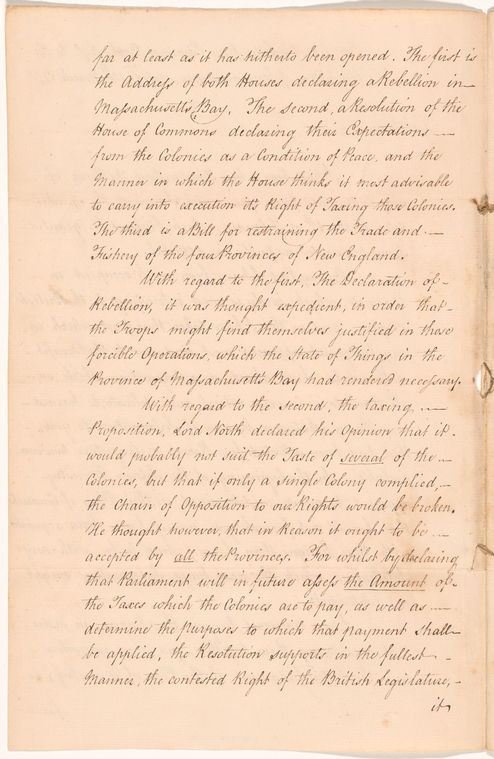 far at least as it has hitherto been opened. The first is
the Address of both Houses declaring a Rebellion in —
Massachusetts Bay. The second, a Resolution of the
House of Commons declaring their Expectations —
from the Colonies as a Condition of Peace, and the
Manner in which the House thinks it most advisable
to carry into execution it's Right of Taxing those Colonies.
The third is a Bill for restraining the Trade and —
Fishery of the four Provinces of New England.
With regard to the first, The Declaration of -
Rebellion, it was thought expedient, in order that -
the Troops might find themselves justified in those
forcible Operations, which the State of Things in the
Province of Massachusett's Bay had rendered necessary.
With regard to the second, the taxing —
Proposition, Lord North declared his Opinion that it -
would probably not suit the Taste of several of the —
Colonies, but that if only a single Colony complied, —
the Chain of Opposition to our Rights would be broken.
He thought however, that in Reason it ought to be —
accepted by all the Provinces. For whilst by declaring
that Parliament will in future assess the Amount of -
the Taxes which the Colonies are to pay, as well as —
determine the Purposes to which that payment shall —
be applied, the Resolution supports in the fullest -
Manner, the contested Right of the British Legislature, -
it